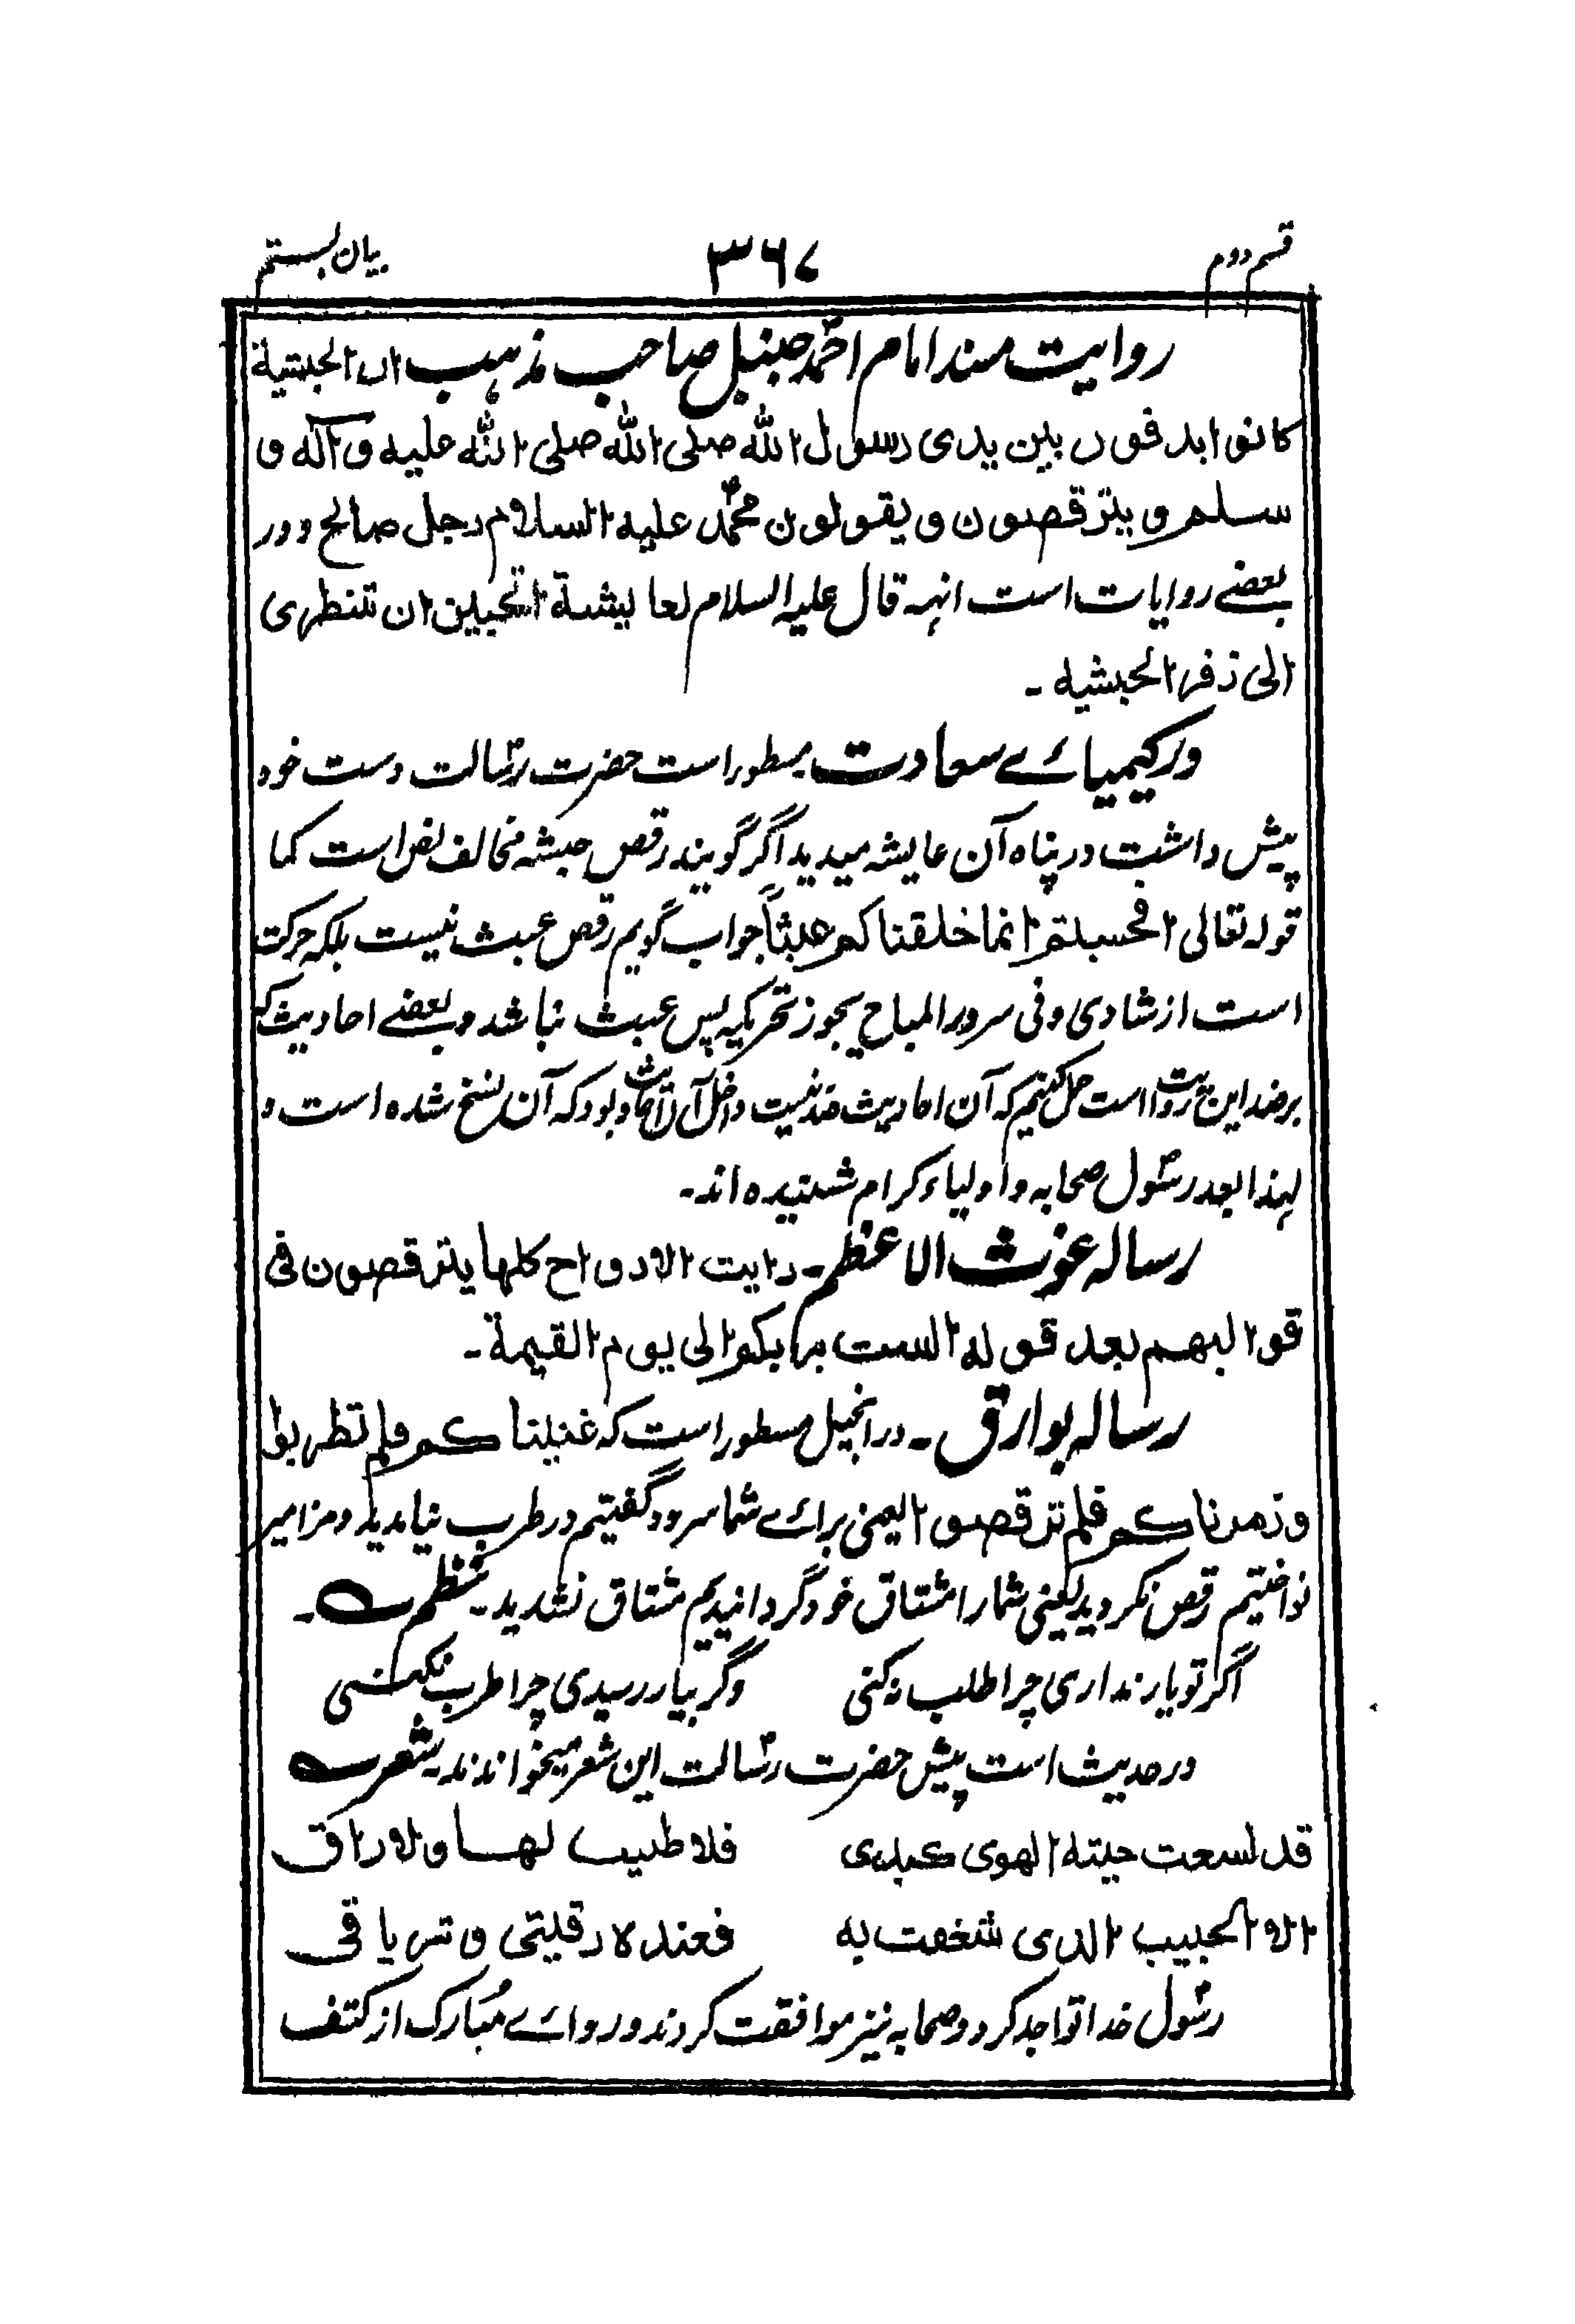 قسم دوم ۳۶۷ بیان بستم
روایت مسند امام احمد حنبل صاحب مذہب ان الحبشیة
کانوا یدفون بین یدی رسول الله صلی الله صلی الله علیه وآله و
سلم ویترقصون ویقولون محمد علیه السلام رجل صالح و در
بعضے روایات است انہہ قال علیہ السلام لعایشة اتحبین ان تنظری
الی زفن الحبشیه ۔
در کیمیائے سعادت مسطور است حضرت رسالت دست خود
پیش داشت در پناہ آن عایشہ میدید اگر گویند رقص حبشہ مخالف نص است کما
قوله تعالی افحسبتم انما خلقناکم عبثاً جواب گویم رقص عبث نیست بلکہ حرکت
است از شادی وفی سرور المباح یجوز تحریکہ پس عبث نباشد و بعضے احادیث کہ
برضد این روایت است حمل کنیم کہ آن احادیث ضد نیست داخل آن احادیث بود کہ آن نسخ شدہ است و
لہذا بعد رسول صحابہ و اولیاء کرام شنیدہ اند۔
رسالہ غوث الاعظم ۔ رایت الارواح کلها یترقصون فی
قوالبهم بعد قوله الست بربکم الی یوم القیمة ۔
رسالہ بوارق ۔ در انجیل مسطور است کہ غنیناکم فلم تطربوا
وزمرناکم فلم ترقصوا یعنی برائے شما سرود گفتیم در طرب نیامدید و مزامیر
نواختیم رقص نکردید یعنی شمارا مشتاق خود گردانیدیم مشتاق نشدید۔ نظم ۔
اگر تو یار نداری چرا طلب نہ کنی وگر بیار رسیدی چرا طرب نکنی
در حدیث است پیش حضرت رسالت این شعر میخواندند ۔ شعر
قد لسعت حیته الهوی کبدی فلا طبیب لها ولا راق
الا الحبیب الذی شغفت به فعنده رقیتی وتریاقی
رسول خدا تواجد کرد و صحابہ نیز موافقت کردند و ردائے مبارک از کتف